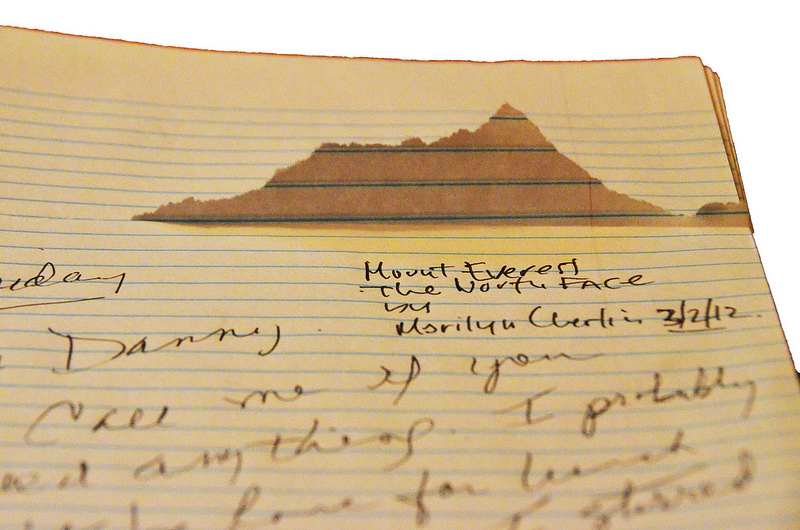 Mount Everest
The North FACE
by
Marilyn Cherlin 3/2/12.
Danny
Call me if you
anything. I probably
home for lunch